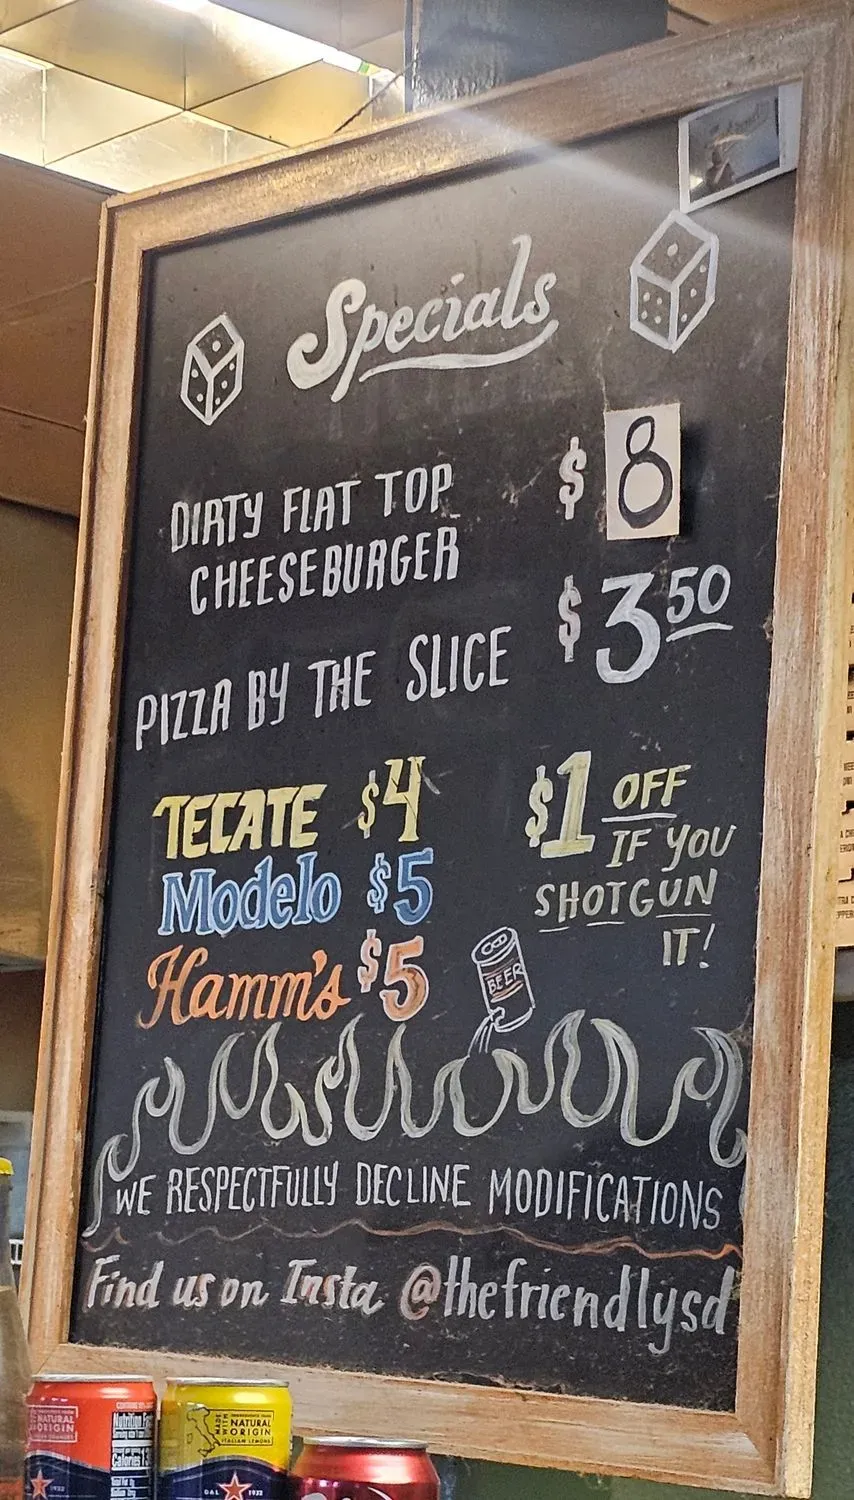 Specials
DIRTY FLAT TOP $8
CHEESEBURGER
PIZZA BY THE SLICE $3.50
TECATE $4
Modelo $5
Hamm's $5
$1 OFF
IF YOU
SHOTGUN
IT!
BEER
WE RESPECTFULLY DECLINE MODIFICATIONS
Find us on Insta @thefriendlysd
NATURAL
ORIGIN
Nutrition
Calories
1932
MADE WITH
NATURAL
ORIGIN
ITALIAN LEMONS
DAL 1932